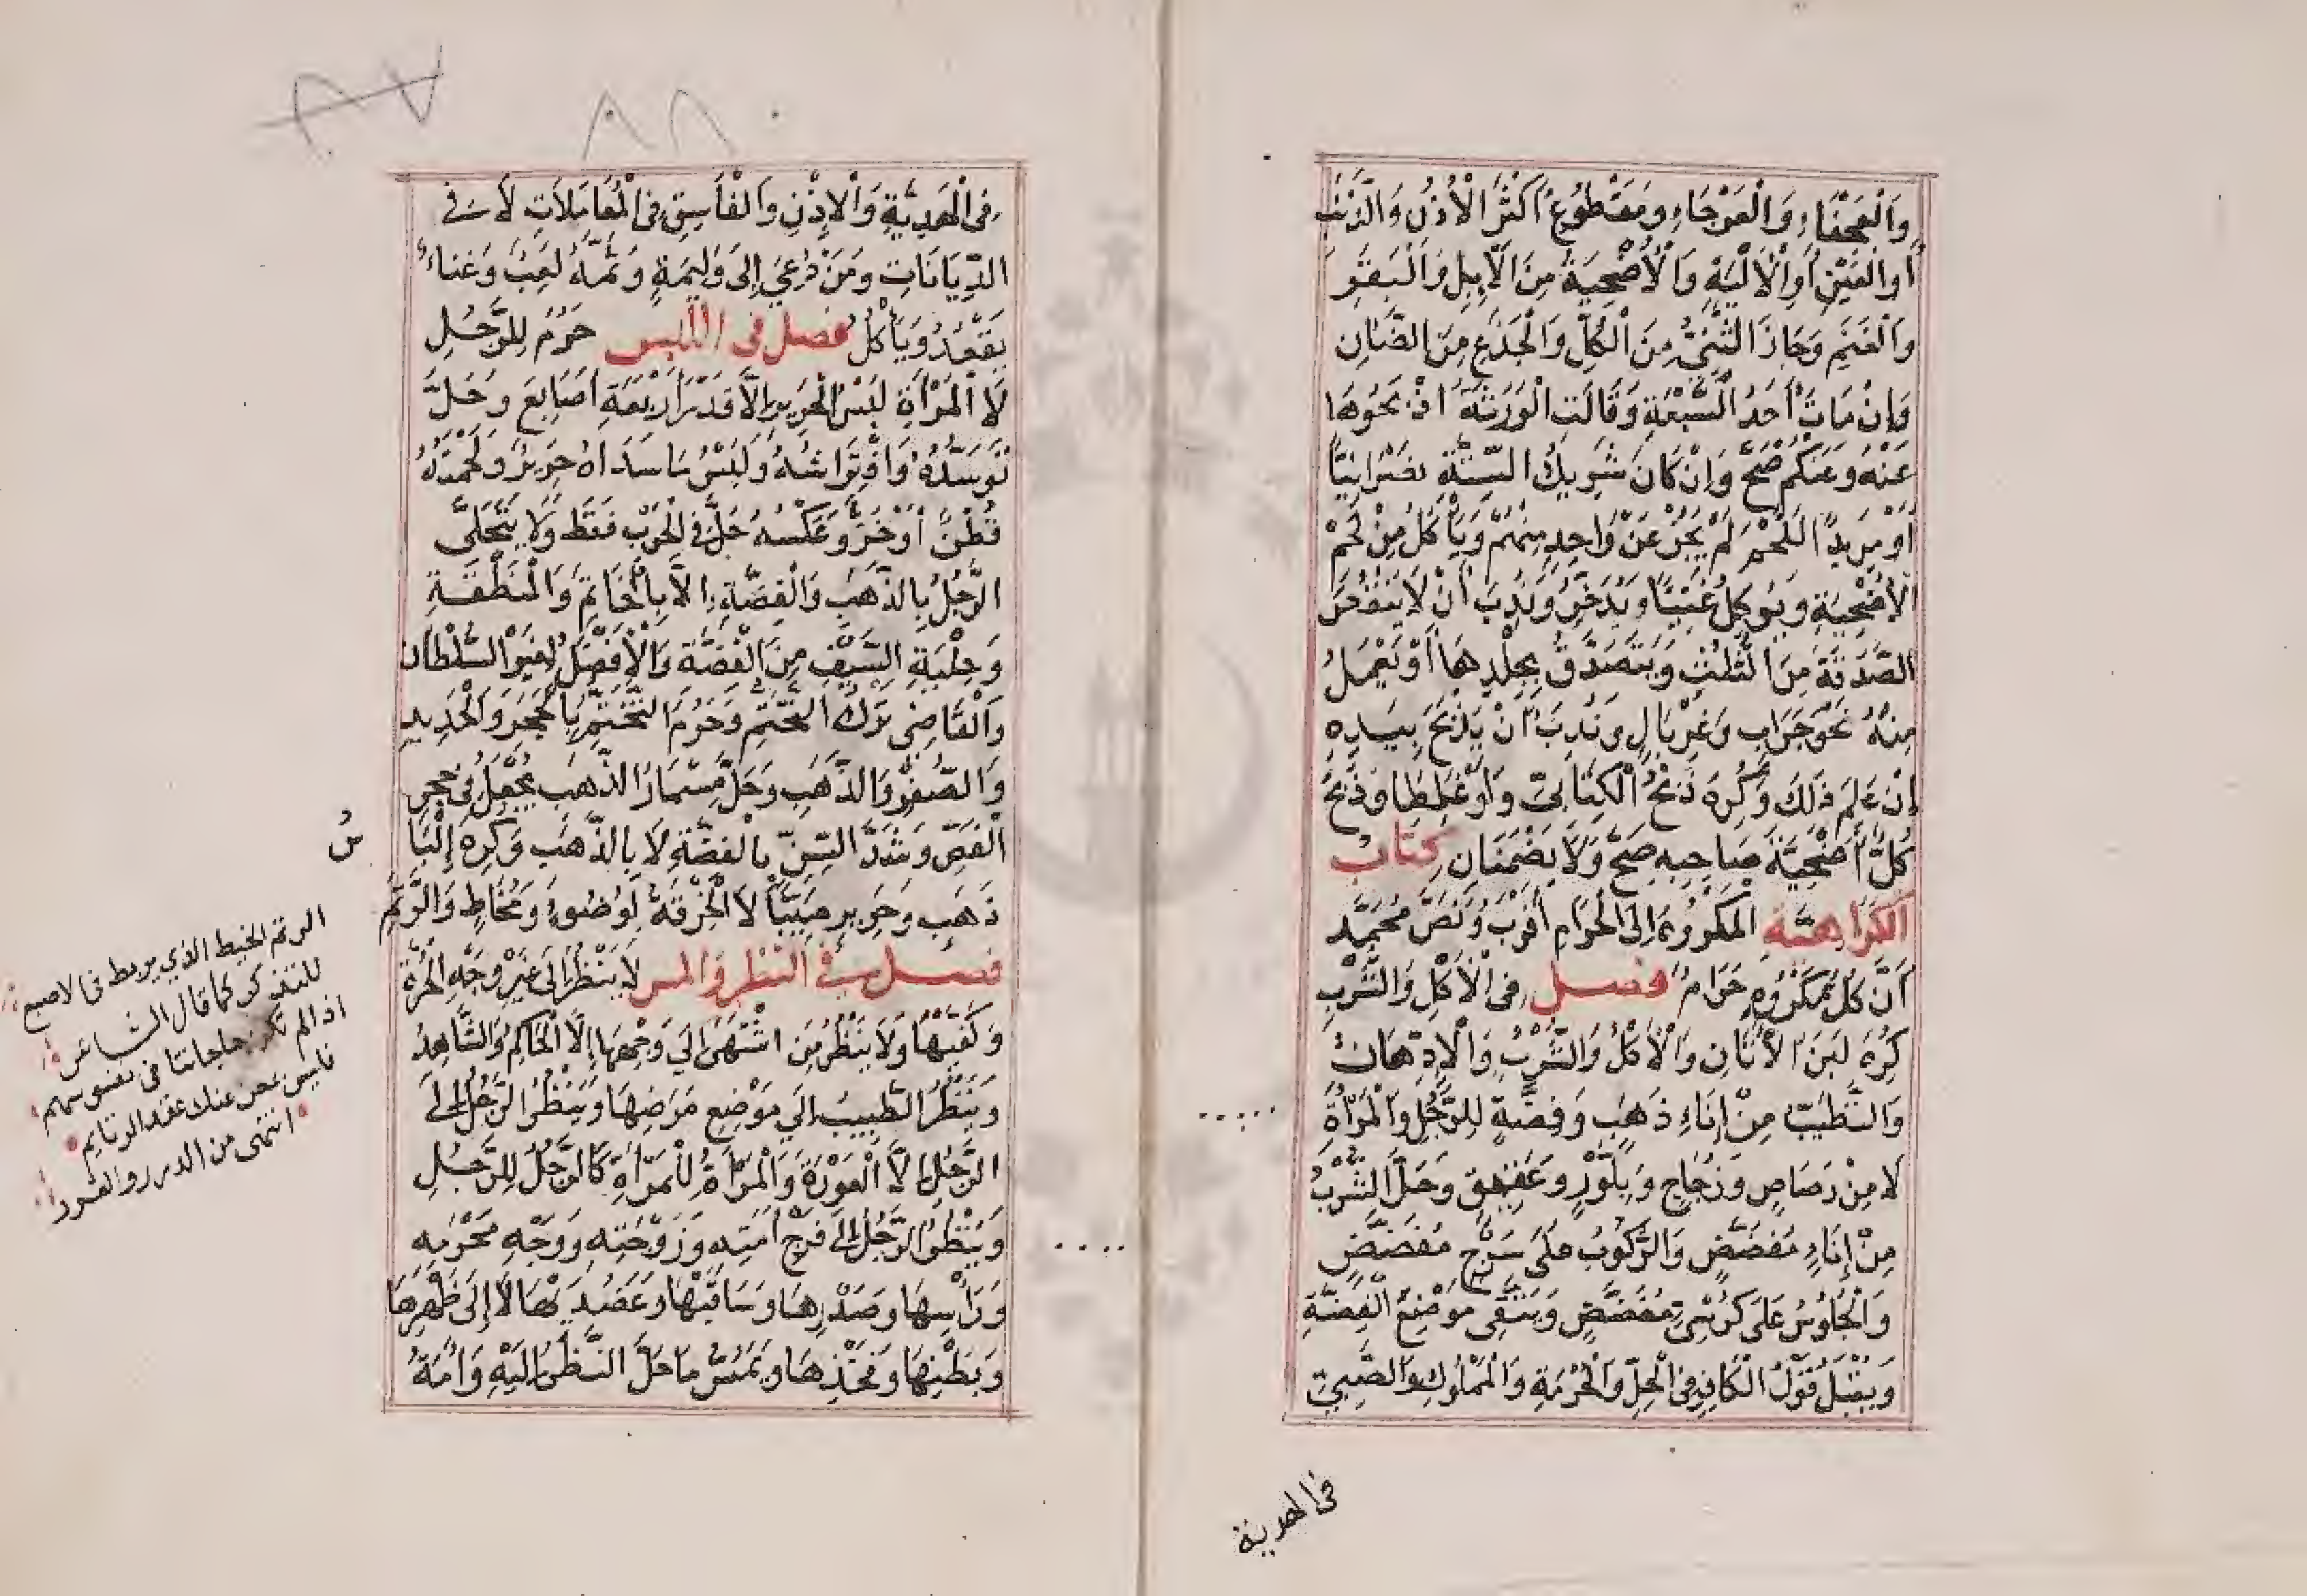 والعجفاء والعرجاء ومقطوع أكثر الأذن والذنب
أو العين أو الألية والأضحية من الإبل والبقر
والغنم وجاز الثني من الكل والجذع من الضان
وإن مات أحد السبعة وقالت الورثة اذبحوها
عنه وعنكم صح وإن كان شريك الستة نصرانيا
أو مريدا اللحم لم يجز عن واحد منهم ويأكل من لحم
الأضحية ويوكل غنيا ويدخر وندب أن لا ينقص
الصدقة من الثلث ويتصدق بجلدها أو يعمل
منه نحو جراب وغربال وندب أن يذبح بيده
إن علم ذلك وكره ذبح الكتابي ولو غلطا وذبح
كل أضحية صاحبه صح ولا يضمنان كتاب
الكراهية المكروه إلى الحرام أقرب ونص محمد
أن كل مكروه حرام فصل في الأكل والشرب
كره لبن الأتان والأكل والشرب والإدهان
والتطيب من إناء ذهب وفضة للرجل والمرأة
لا من رصاص وزجاج وبلور وعقيق وحل الشرب
من إناء مفضض والركوب على سرج مفضض
والجلوس على كرسي مفضض ويتقي موضع الفضة
ويقبل قول الكافر في الحل والحرمة والمملوك والصبي
في الهدية
٨٧
٨٨
في الهدية والإذن والفاسق في المعاملات لا في
الديانات ومن دعي إلى وليمة وثمه لعب وغناء
يقعد ويأكل فصل في اللبس حرم للرجل
لا المرأة لبس الحرير إلا قدر أربعة أصابع وحل
توسده وافتراشه ولبس ما سداه حرير ولحمته
قطن أو خز وعكسه حل في الحرب فقط ولا يتحلى
الرجل بالذهب والفضة إلا بالخاتم والمنطقة
وحلية السيف من الفضة والأفضل لغير السلطان
والقاضي ترك التختم وحرم التختم بالحجر والحديد
والصفر والذهب وحل مسمار الذهب يجعل في حجر
الفص وشد السن بالفضة لا بالذهب وكره إلباس
ذهب وحرير صبيا لا الخرقة لوضوء ومخاط والرتم
فصل في النظر والمس لا ينظر إلى غير وجه الحرة
وكفيها ولا ينظر من اشتهى إلى وجهها إلا الحاكم والشاهد
وينظر الطبيب إلى موضع مرضها وينظر الرجل إلى
الرجل إلا العورة والمرأة للمرأة كالرجل للرجل
وينظر الرجل إلى فرج أمته وزوجته ووجه محرمه
ورأسها وصدرها وساقيها وعضديها لا إلى ظهرها
وبطنها وفخذها ويمس ما حل النظر إليه وأمة
الرتم الخيط الذي يربط في الاصبع
للتذكر كما قال الشاعر
اذا لم تكن حاجاتنا في نفوسهم
فليس بمغن عنك عقد الرتايم
انتهى من الدرر والغرر